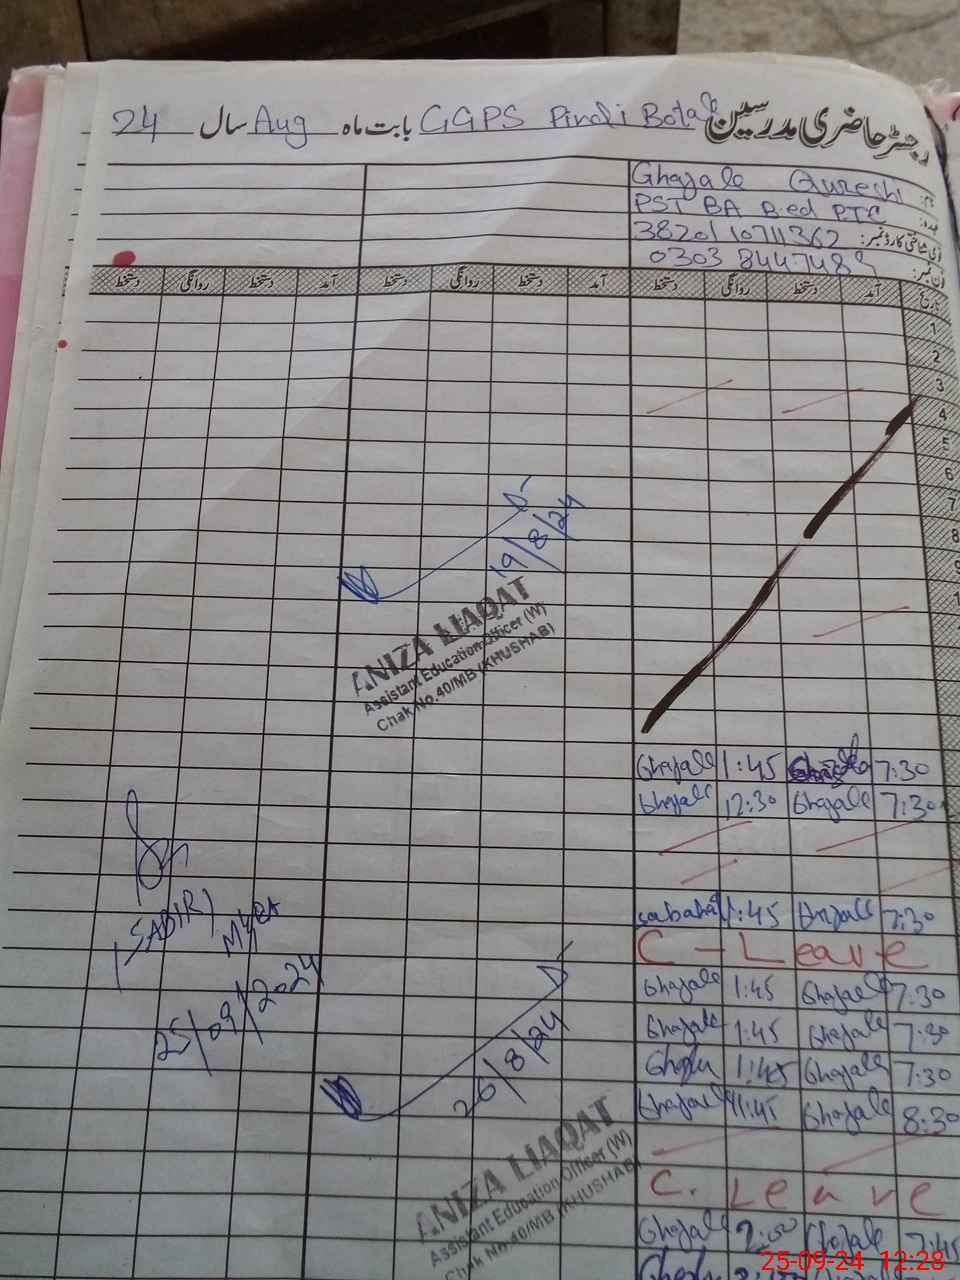 رجسٹر حاضری مدرسین GGPS Pirali Botala بابت ماہ Aug سال 24
Ghazala Qureshi
PST BA B.ed PTC
عہدہ:
3820110711362
0303 8447489
تاریخ آمد دستخط روانگی دستخط آمد دستخط روانگی دستخط آمد دستخط روانگی دستخط
1
2
3
4
5
6
7
8
19/8/24
ANIZA LIAQAT
Assistant Education Officer (W)
Chak No.40/MB (KHUSHAB)
7:30 Ghazala 1:45 Ghazala
7:30 Ghazala 12:30 Ghazala
7:30 Ghazala 1:45
C - Leave
7:30 Ghazala 1:45 Ghazala
7:30 Ghazala 1:45 Ghazala
7:30 Ghazala 1:45
8:30 Ghazala 11:45 Ghazala
C. Leave
7:45 Ghazala 2:00 Ghazala
(SABIR)
25/09/2024
26/8/24
ANIZA LIAQAT
Assistant Education Officer (W)
Chak No.40/MB (KHUSHAB)
25-09-24 12:28